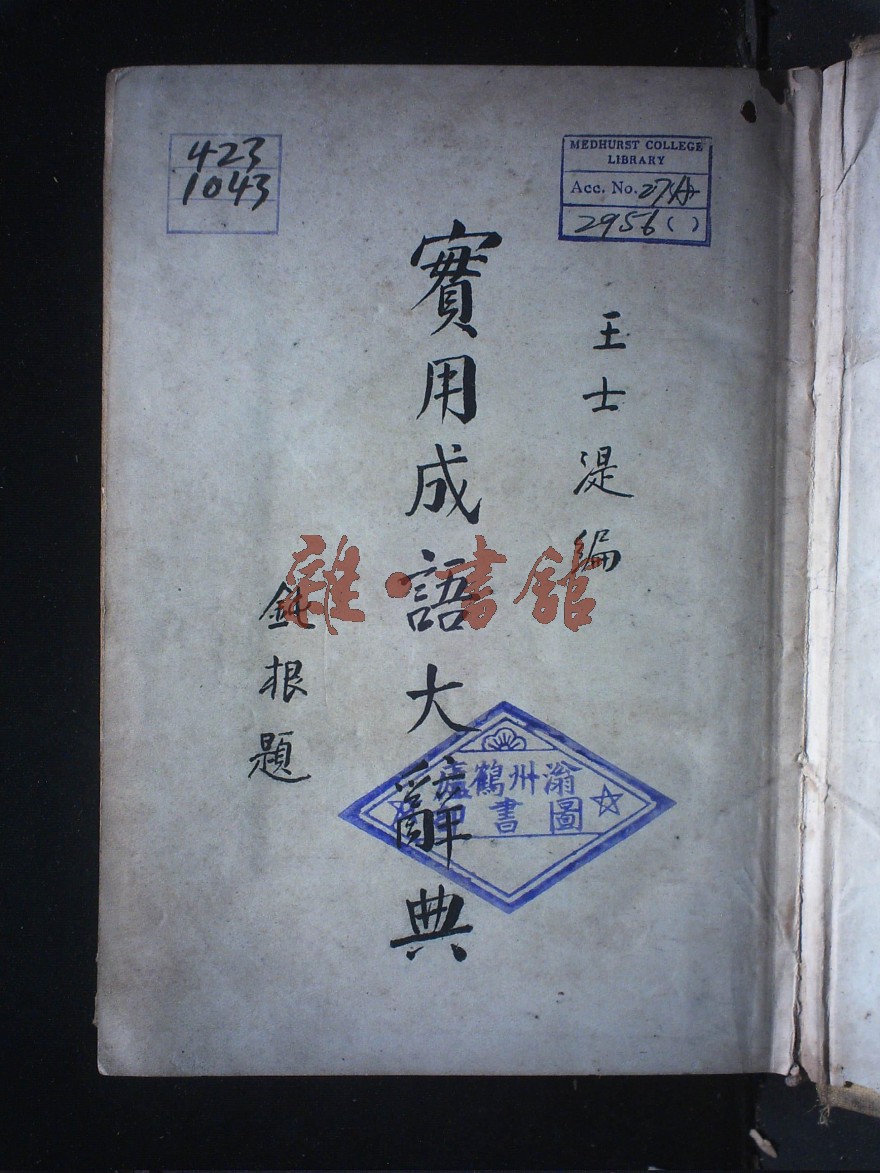 423
1043
MEDHURST COLLEGE
LIBRARY
Acc. No.
2956( )
王士湜編
實用成語大辭典
鈍根題
雜·書館
滃州鶴廬
圖書